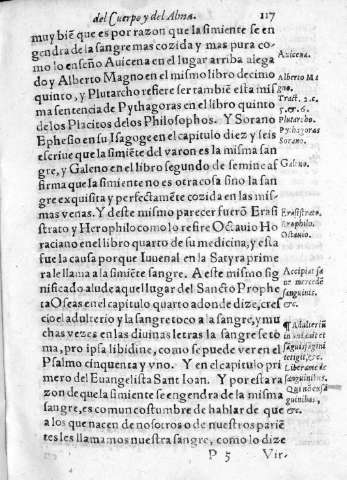 del Cuerpo y del Alma. 117
muy biẽ que es por razon que la simiente se en
gendra de la sangre mas cozida y mas pura co-
mo lo enseño Auicena en el lugar arriba alega
do y Alberto Magno en el mismo libro decimo
quinto, y Plutarcho refiere ser tambiẽ esta mis
ma sentencia de Pythagoras en el libro quinto
de los Placitos de los Philosophos. Y Sorano
Ephesio en su Isagoge en el capitulo diez y seis
escriue que la simiẽte del varon es la misma san
gre, y Galeno en el libro segundo de semine af
firma que la simiente no es otra cosa sino la san
gre exquisita y perfectamẽte cozida en las mis-
mas venas. Y deste mismo parecer fuerõ Erasi
strato y Herophilo como lo refire Octauio Ho
raciano en el libro quarto de su medicina, y esta
fue la causa porque Iuuenal en la Satyra prime
ra le llama a la simiẽte sangre. A este mismo sig
nificado alude aquel lugar del Sancto Prophe
ta Oseas en el capitulo quarto adonde dize, cres
cio el adulterio y la sangre toco a la sangre, y mu
chas vezes en las diuinas letras la sangre se to
ma, pro ipsa libidine, como se puede ver en el
Psalmo cinquenta y vno. Y en el capitulo pri
mero del Euangelista Sant Ioan. Y por esta ra
zon de que la simiente se engendra de la misma
sangre, es comun costumbre de hablar de que
a los que nacen de nosotros o de nuestros pariẽ
tes les llamamos nuestra sangre, como lo dize
P 5 Vir.
Auicena.
Alberto Ma
gno.
Tract. 2. c.
5. et 6.
Plutarbo.
Pythagoras
Sorano.
Galeno.
Erasistrato.
Eraphilo.
Octauio.
Accipiat sa
ne mercedẽ
sanguinis,
&c.
¶ Adulteriũ
inundauit et
sãguis sãgninẽ
tetigit, &c.
Libera me de
sanguinibus.
Qui nõ ex sã
guinibus,
&c.